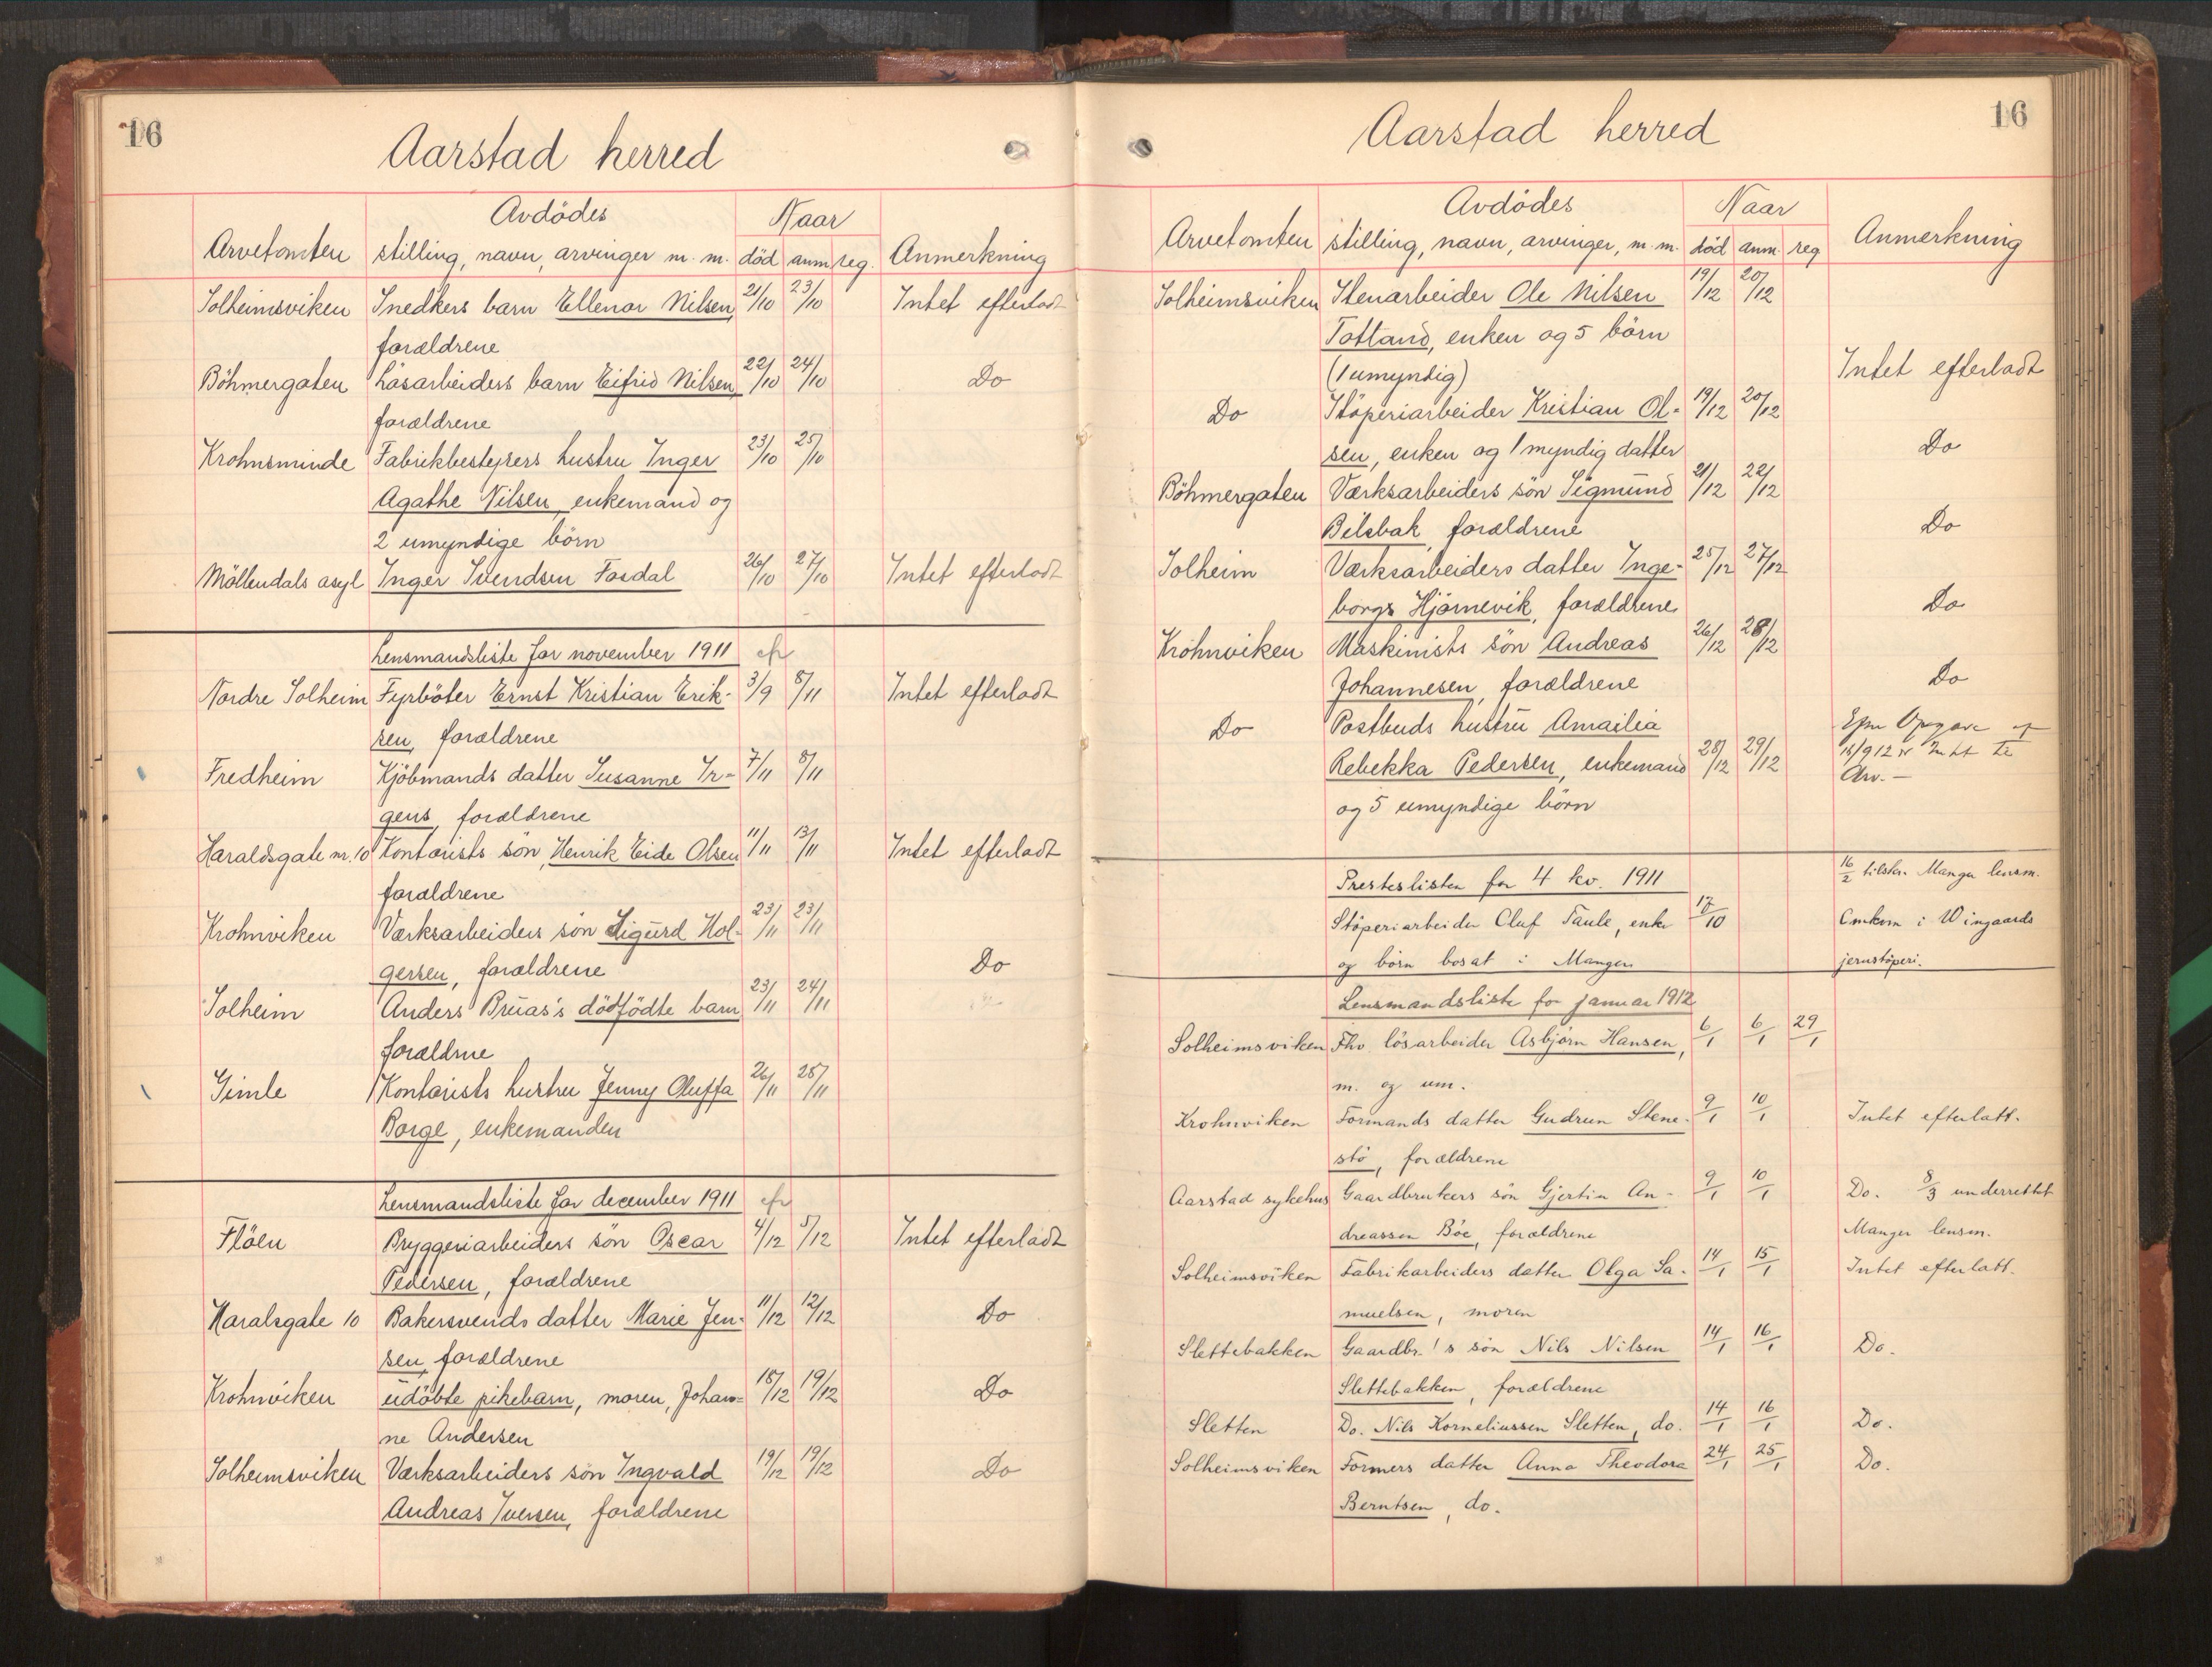 16
Aarstad herred
Avdödes
Naar
Arvetomten stilling, navn, arvinger m. m. död anm. reg. Anmerkning
Solheimsviken Snedkers barn Ellenor Nilsen, 21/10 23/10 Intet efterladt
forældrene
Böhmergaten Lösarbeiders barn Eifrid Nilsen, 22/10 24/10 Do
forældrene
Krohnsminde Fabrikbestyrers hustru Inger 23/10 25/10
Agathe Nilsen, enkemand og
2 umyndige börn
Möllendals asyl Inger Svendsen Fosdal 26/10 27/10 Intet efterladt
Lensmandsliste for november 1911
Nordre Solheim Fyrböter Ernst Kristian Erik- 3/9 8/11 Intet efterladt
sen, forældrene
Fredheim Kjöbmands datter Susanne Ir- 7/11 8/11
gens, forældrene
Haraldsgate nr. 10 Kontorists sön, Henrik Eide Olsen 11/11 13/11 Intet efterladt
forældrene
Krohnviken Værksarbeiders sön Sigurd Hol- 23/11 23/11
gersen, forældrene Do
Solheim Anders Bruås's dödfödte barn 23/11 24/11
forældrene
Gimle Kontorists hustru Jenny Oluffa 26/11 28/11
Borge, enkemanden
Lensmandsliste for december 1911
Flöen Bryggeriarbeiders sön Oscar 4/12 5/12 Intet efterladt
Pedersen, forældrene
Haralsgate 10 Bakersvends datter Marie Jen- 11/12 12/12 Do
sen, forældrene
Krohnviken udöbte pikebarn, moren, Johan= 18/12 19/12 Do
ne Andersen
Solheimsviken Værksarbeiders sön Ingvald 19/12 19/12 Do
Andreas Iversen, forældrene
16
Aarstad herred
Avdödes
Naar
Arvetomten stilling, navn, arvinger, m. m. död anm. reg. Anmerkning
Solheimsviken Stenarbeider Ole Nilsen 19/12 20/12
Totland, enken og 5 börn
(1 umyndig) Intet efterladt
Do Stöperiarbeider Kristian Ol- 19/12 20/12
sen, enken og 1 myndig datter Do
Böhmergaten Værksarbeiders sön Sigmund 21/12 22/12
Bilsbak, forældrene Do
Solheim Værksarbeiders datter Inge- 25/12 27/12
borgs Hjörnevik, forældrene Do
Krohnviken Maskinists sön Andreas 26/12 28/12
Johannesen, forældrene Do
Do Postbuds hustru Amailia
Rebekka Pedersen, enkemand 28/12 29/12
og 5 umyndige börn
Efm Opgave af
Arv. —
Presteslisten for 4 kv. 1911 16/2 tilskr. Manger lensm.
Stöperiarbeider Oluf Taule, enke 17/10 Omkom i Wingaards
og börn bosat i Manger jernstöperi.
Lensmandsliste for januar 1912
Solheimsviken Fhv. lösarbeider Asbjörn Hansen, 6/1 6/1 29/1
m. og um.
Krohnviken Formands datter Gudrun Stene- 9/1 10/1 Intet efterlatt.
stö, forældrene
Aarstad sykehus Gaardbrukers sön Gjertin An- 9/1 10/1 Do. 8/3 underrettet
dreassen Böe, forældrene Manger lensm.
Solheimsviken Fabrikarbeiders datter Olga Sa- 14/1 15/1 Intet efterlatt.
muelsen, moren
Slettebakken Gaardbr.'s sön Nils Nilsen 14/1 16/1 Do.
Slettebakken, forældrene
Sletten Do. Nils Korneliussen Sletten, do. 14/1 16/1 Do.
Solheimsviken Formers datter Anna Theodora 24/1 25/1 Do.
Berntsen, do.